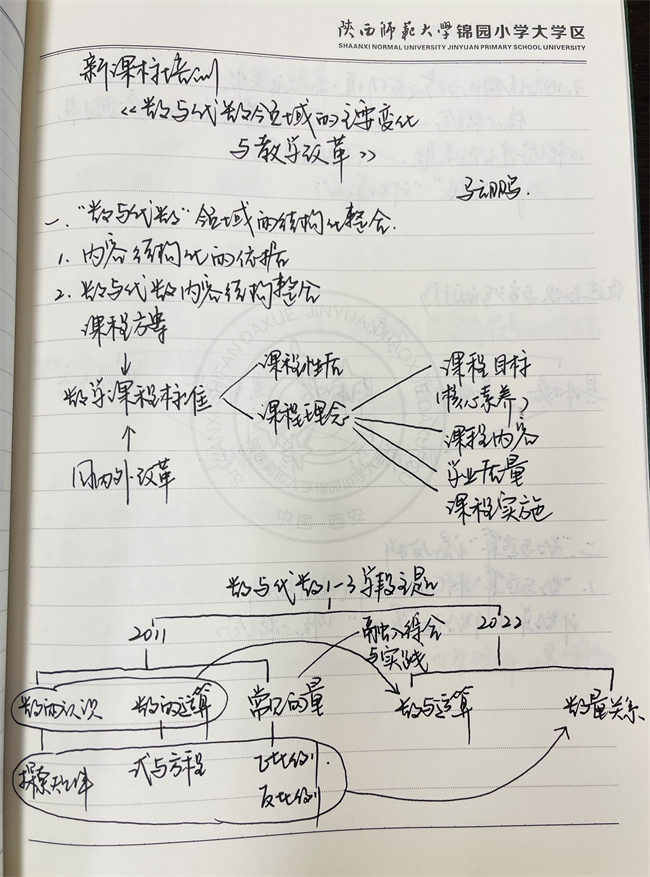 陕西师范大学锦园小学大学区
SHAANXI NORMAL UNIVERSITY JINYUAN PRIMARY SCHOOL UNIVERSITY
新课标培训
《数与代数领域的主要变化
与教学改革》
马云鹏.
一、"数与代数"领域的结构化整合.
1. 内容结构化的依据
2. 数与代数内容结构整合
课程方案
数学课程标准
国内外改革
课程性质
课程理念
课程目标
(核心素养)
课程内容
学业质量
课程实施
中国·西安
数与代数1-3学段主题
2011
融入综合
与实践
2022
数的认识 数的运算 常见的量
数与运算 数量关系
探索规律 式与方程 正比例.
反比例